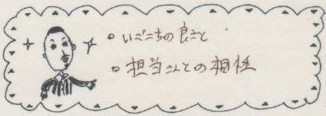 。いごこちの良さと
。担当さんとの相性